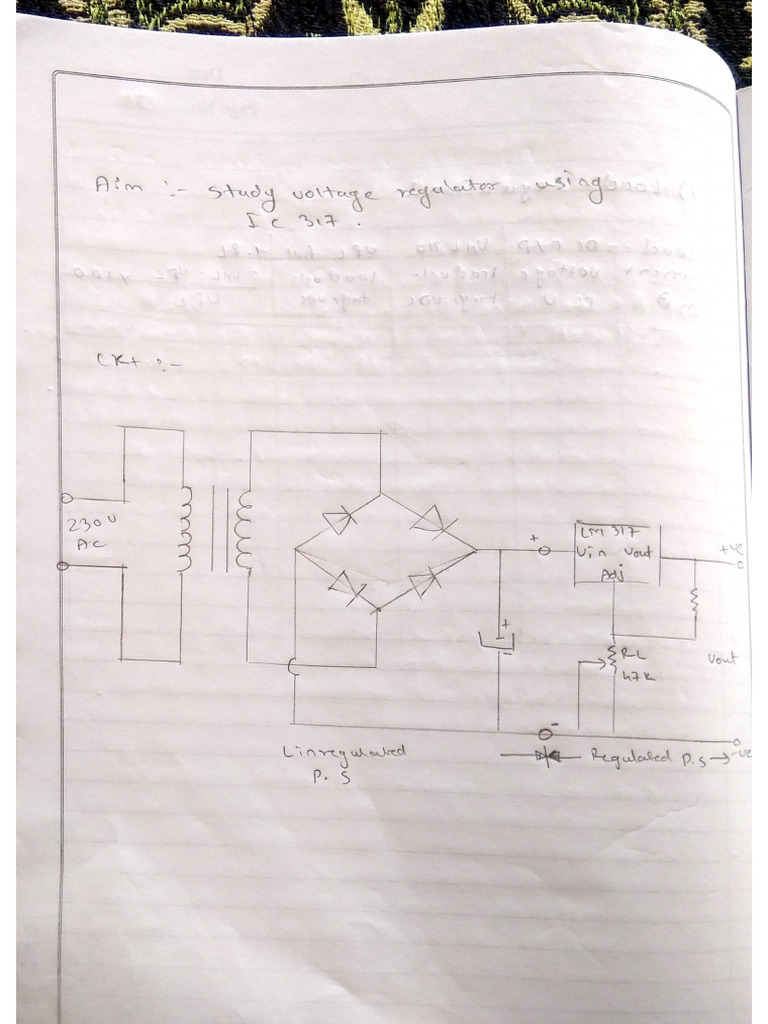 Aim :- Study voltage regulator using
IC 317.
CKt :-
230V
AC
+
LM 317
Vin Vout
Adj
+ve
+
-
RL
47K
Vout
-
-ve
Unregulated
P. S
Regulated P. S